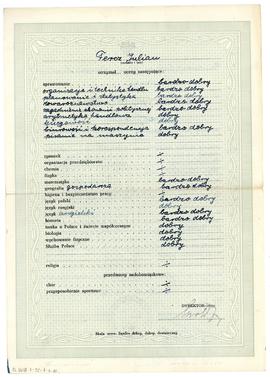 Feroz Julian
otrzymał oceny następujące:
sprawowanie bardzo dobry
organizacja i technika handlu bardzo dobry
planowanie i statystyka bardzo dobry
towaroznawstwo bardzo dobry
zagadnienia ekonomii politycznej bardzo dobry
arytmetyka handlowa dobry
księgowość dobry
biurowość i korespondencja bardzo dobry
pisanie na maszynie dobry
rysunek
organizacja przedsiębiorstw
chemia
fizyka
matematyka bardzo dobry
geografia gospodarcza bardzo dobry
higiena i bezpieczeństwo pracy
język polski dobry
język rosyjski dobry
język angielski bardzo dobry
historia bardzo dobry
nauka o Polsce i świecie współczesnym dobry
biologia dobry
wychowanie fizyczne dobry
Służba Polsce dobry
religia
przedmioty nadobowiązkowe:
chór
przysposobienie sportowe
DYREKTOR
Skala ocen: bardzo dobry, dobry, dostateczny